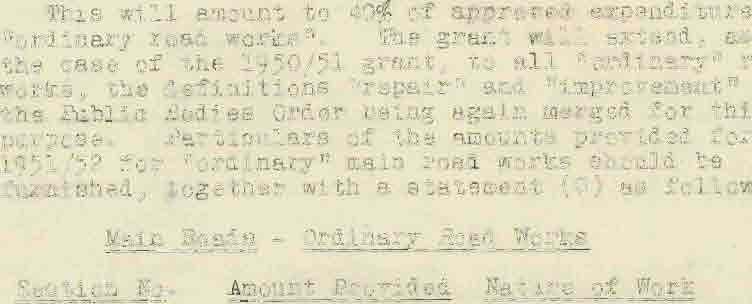 This will amount to 40% of approved expenditure
"ordinary road works". The grant will extend, as
the case of the 1950/51 grant, to all "ordinary" r
works, the definitions "repair" and "improvement"
the Public Bodies Order being again merged for thi
purpose. Particulars of the amounts provided for
1951/52 for "ordinary" main road works should be
furnished, together with a statement () as follow
Main Roads - Ordinary Road Works
Section No. Amount Provided Nature of Work